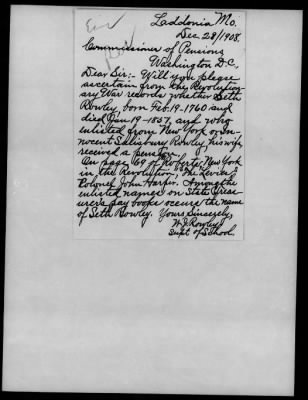 Laddonia Mo.
Dec 28/1908.
Commissioner of Pensions
Washington D.C.,
Dear Sir:- Will you please
ascertain from the Revolution-
ary War records whether Seth
Rowley, born Feb. 19-1760 and
died Jan-19-1857, and who
enlisted from New York or In-
nocent Salisbury Rowley, his wife,
received a pension.
On page 69 of Roberts, New York
in the Revolution, The Levies
Colonel John Harper. Among the
enlisted names on State Treas-
urer's pay books occurs the name
of Seth Rowley. Yours Sincerely,
W. J. Rowley
Supt of School.